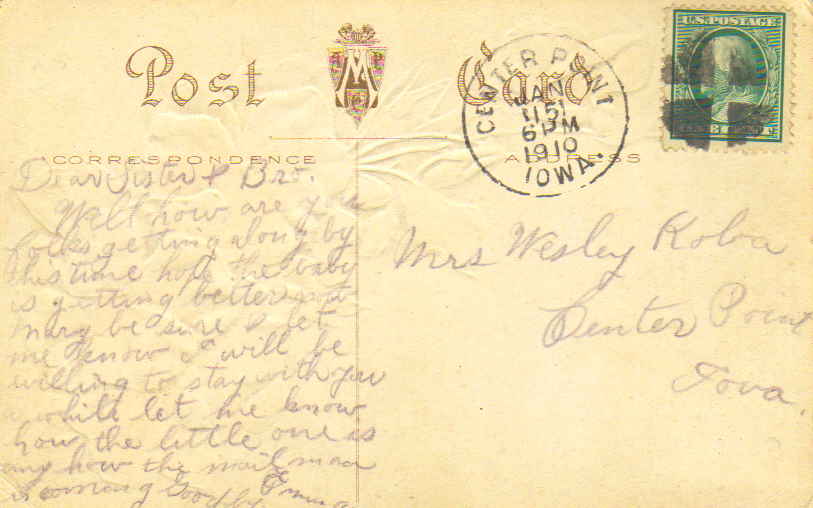 Post Card
U.S. POSTAGE
CENTER POINT
JAN
15
6 PM
1910
IOWA.
CORRESPONDENCE
ADDRESS
Dear Sister & Bro.
Well how are you
folks getting along by
this time hope the baby
is getting better
Mary be sure & let
me know I will be
willing to stay with you
a while let me know
how the little one is
any how the mail man
is coming Goodby
Mrs Wesley Koba
Center Point
Iova.